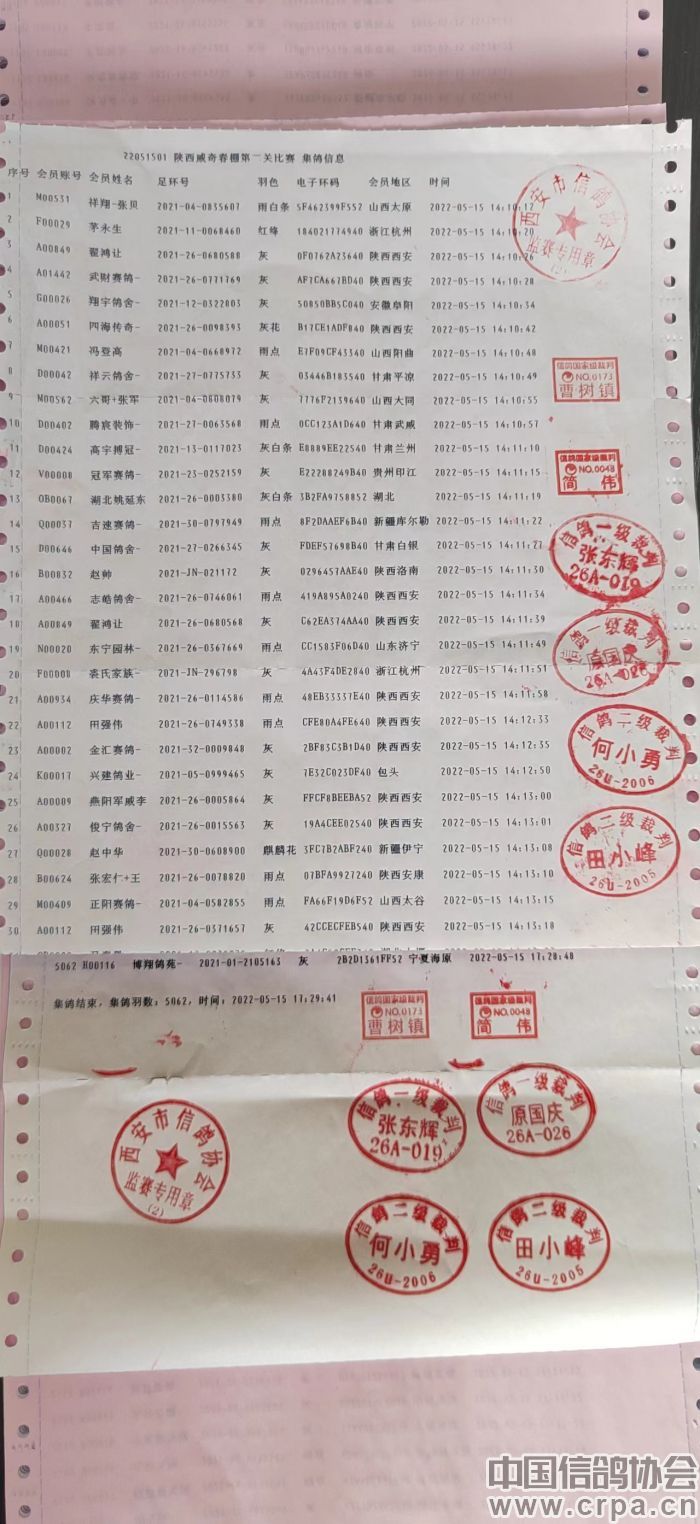 22051501 陕西威奇春棚第二关比赛 集鸽信息
序号 会员账号 会员姓名 足环号 羽色 电子环码 会员地区 时间
1 M00531 祥翔-张贝 2021-04-0835607 雨白条 5F462399F552 山西太原 2022-05-15 14:10:12
2 F00029 茅永生 2021-11-0068460 红绛 184021774940 浙江杭州 2022-05-15 14:10:20
3 A00849 翟鸿让 2021-26-0680588 灰 0F0762A23640 陕西西安 2022-05-15 14:10:26
4 A01442 武财赛鸽- 2021-26-0771769 灰 AF7CA667BD40 陕西西安 2022-05-15 14:10:28
5 G00026 翔宇鸽舍- 2021-12-0322803 灰 50850BB5C040 安徽阜阳 2022-05-15 14:10:34
6 A00051 四海传奇- 2021-26-0098393 灰花 B17CE1ADF840 陕西西安 2022-05-15 14:10:42
7 M00421 冯登高 2021-04-0668972 雨点 E7F09CF43340 山西阳曲 2022-05-15 14:10:48
8 D00042 祥云鸽舍- 2021-27-0775733 灰 03446B183540 甘肃平凉 2022-05-15 14:10:49
9 M00562 六哥+张军 2021-04-0808079 灰 7776F2139640 山西大同 2022-05-15 14:10:55
10 D00402 腾宸装饰- 2021-27-0063568 雨点 0CC123A1D640 甘肃武威 2022-05-15 14:10:57
11 D00424 高宇搏冠- 2021-13-0117023 灰白条 E8889EE22540 甘肃兰州 2022-05-15 14:11:10
12 V00008 冠军赛鸽- 2021-23-0252159 灰 E22288249B40 贵州印江 2022-05-15 14:11:15
13 OB0067 湖北姚延东 2021-26-0003380 灰白条 3B2FA9758852 湖北 2022-05-15 14:11:19
14 Q00037 吉速赛鸽- 2021-30-0797949 雨点 8F2DAAEF6B40 新疆库尔勒 2022-05-15 14:11:22
15 D00646 中国鸽舍- 2021-27-0266345 灰 FDEF57698B40 甘肃白银 2022-05-15 14:11:27
16 B00832 赵帅 2021-JN-021172 灰 0296457AAE40 陕西洛南 2022-05-15 14:11:30
17 A00466 志皓鸽舍- 2021-26-0746061 雨点 419A895A0240 陕西西安 2022-05-15 14:11:34
18 A00849 翟鸿让 2021-26-0680568 灰 C62EA374AA40 陕西西安 2022-05-15 14:11:39
19 N00020 东宁园林- 2021-26-0367669 雨点 CC1583F06D40 山东济宁 2022-05-15 14:11:49
20 F00008 裘氏家族- 2021-JN-296798 灰 4A43F4DE2840 浙江杭州 2022-05-15 14:11:51
21 A00934 庆华赛鸽- 2021-26-0114586 雨点 48EB33337E40 陕西西安 2022-05-15 14:11:58
22 A00112 田强伟 2021-26-0749338 雨点 CFE80A4FE640 陕西西安 2022-05-15 14:12:33
23 A00002 金汇赛鸽- 2021-32-0009848 灰 2BF83C3B1D40 陕西西安 2022-05-15 14:12:40
24 K00017 兴建鸽业- 2021-05-0999465 灰 7E32C023DF40 包头 2022-05-15 14:12:50
25 A00009 燕阳军威李 2021-26-0005864 灰 FFCF8BEEBA52 陕西西安 2022-05-15 14:13:00
26 A00327 俊宁鸽舍- 2021-26-0015563 灰 19A4CEE02540 陕西西安 2022-05-15 14:13:01
27 Q00028 赵中华 2021-30-0608900 麒麟花 3FC7B2ABF240 新疆伊宁 2022-05-15 14:13:08
28 B00624 张宏仁+王 2021-26-0078820 雨点 07BFA9927240 陕西安康 2022-05-15 14:13:10
29 M00409 正阳赛鸽- 2021-04-0582855 雨点 FA66F19D6F52 山西太谷 2022-05-15 14:13:15
30 A00112 田强伟 2021-26-0371657 灰 42CCECFEB540 陕西西安 2022-05-15 14:13:18
西安市信鸽协会
监赛专用章
(2)
信鸽国家级裁判
NO.0173
曹树镇
信鸽国家级裁判
NO.0048
简 伟
信鸽一级裁判
张东辉
26A-019
信鸽一级裁判
原国庆
26A-026
信鸽二级裁判
何小勇
26U-2006
信鸽二级裁判
田小峰
26U-2005
5062 H00116 博翔鸽苑- 2021-01-2105163 灰 2B2D1361FF52 宁夏海原 2022-05-15 17:28:48
集鸽结束，集鸽羽数：5062，时间：2022-05-15 17:29:41
信鸽国家级裁判
NO.0173
曹树镇
信鸽国家级裁判
NO.0048
简 伟
西安市信鸽协会
监赛专用章
(2)
信鸽一级裁判
张东辉
26A-019
信鸽一级裁判
原国庆
26A-026
信鸽二级裁判
何小勇
26U-2006
信鸽二级裁判
田小峰
26U-2005
中国信鸽协会
www.crpa.cn